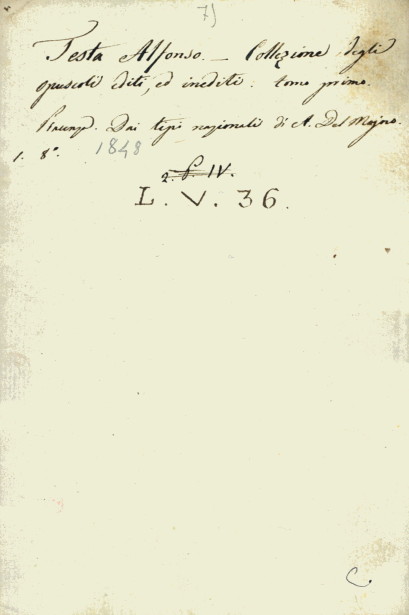 7)
Testa Alfonso. – Collezione degli
opuscoli editi, ed inediti. tomo primo.
Piacenza. Dai tipi nazionali di A. Del Majno.
1. 8°. 1848
2. P. IV.
L. V. 36.
C.